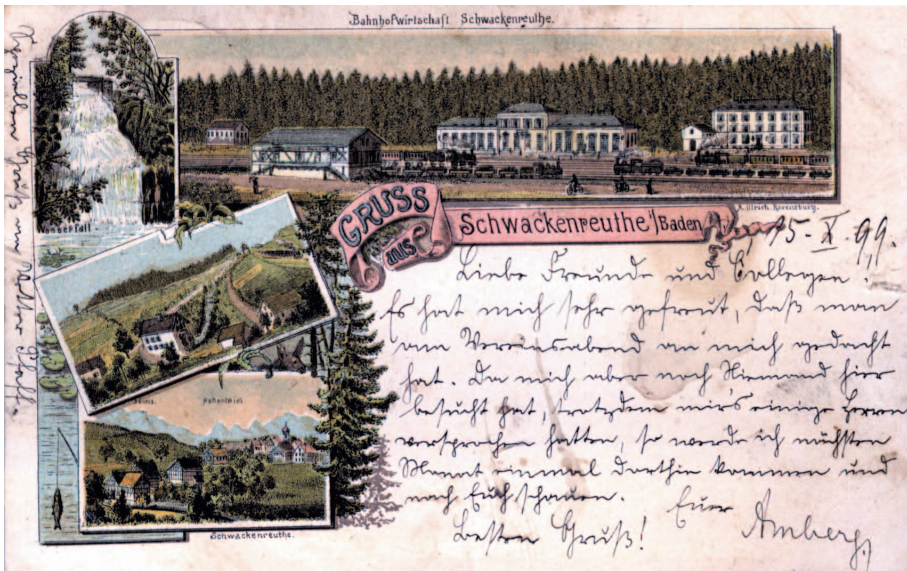 Bahnhofwirtschaft Schwackenreuthe.
Wasserfall
A. Ulrich, Ravensburg.
GRUSS
aus
Schwackenreuthe i/Baden
15-X.99.
Liebe Freunde und Collegen
Es hat mich sehr gefreut, daß man
am Vereinsabend an mich gedacht
hat. Da mich aber noch Niemand hier
besucht hat, trotzdem mir's einige Herrn
versprochen hatten, so werde ich nächsten
Monat einmal dorthin kommen und
nach Euch schauen.
Euer
Besten Gruß!
Amberg.
Säntis. Hohentwiel
Schwackenreuthe.